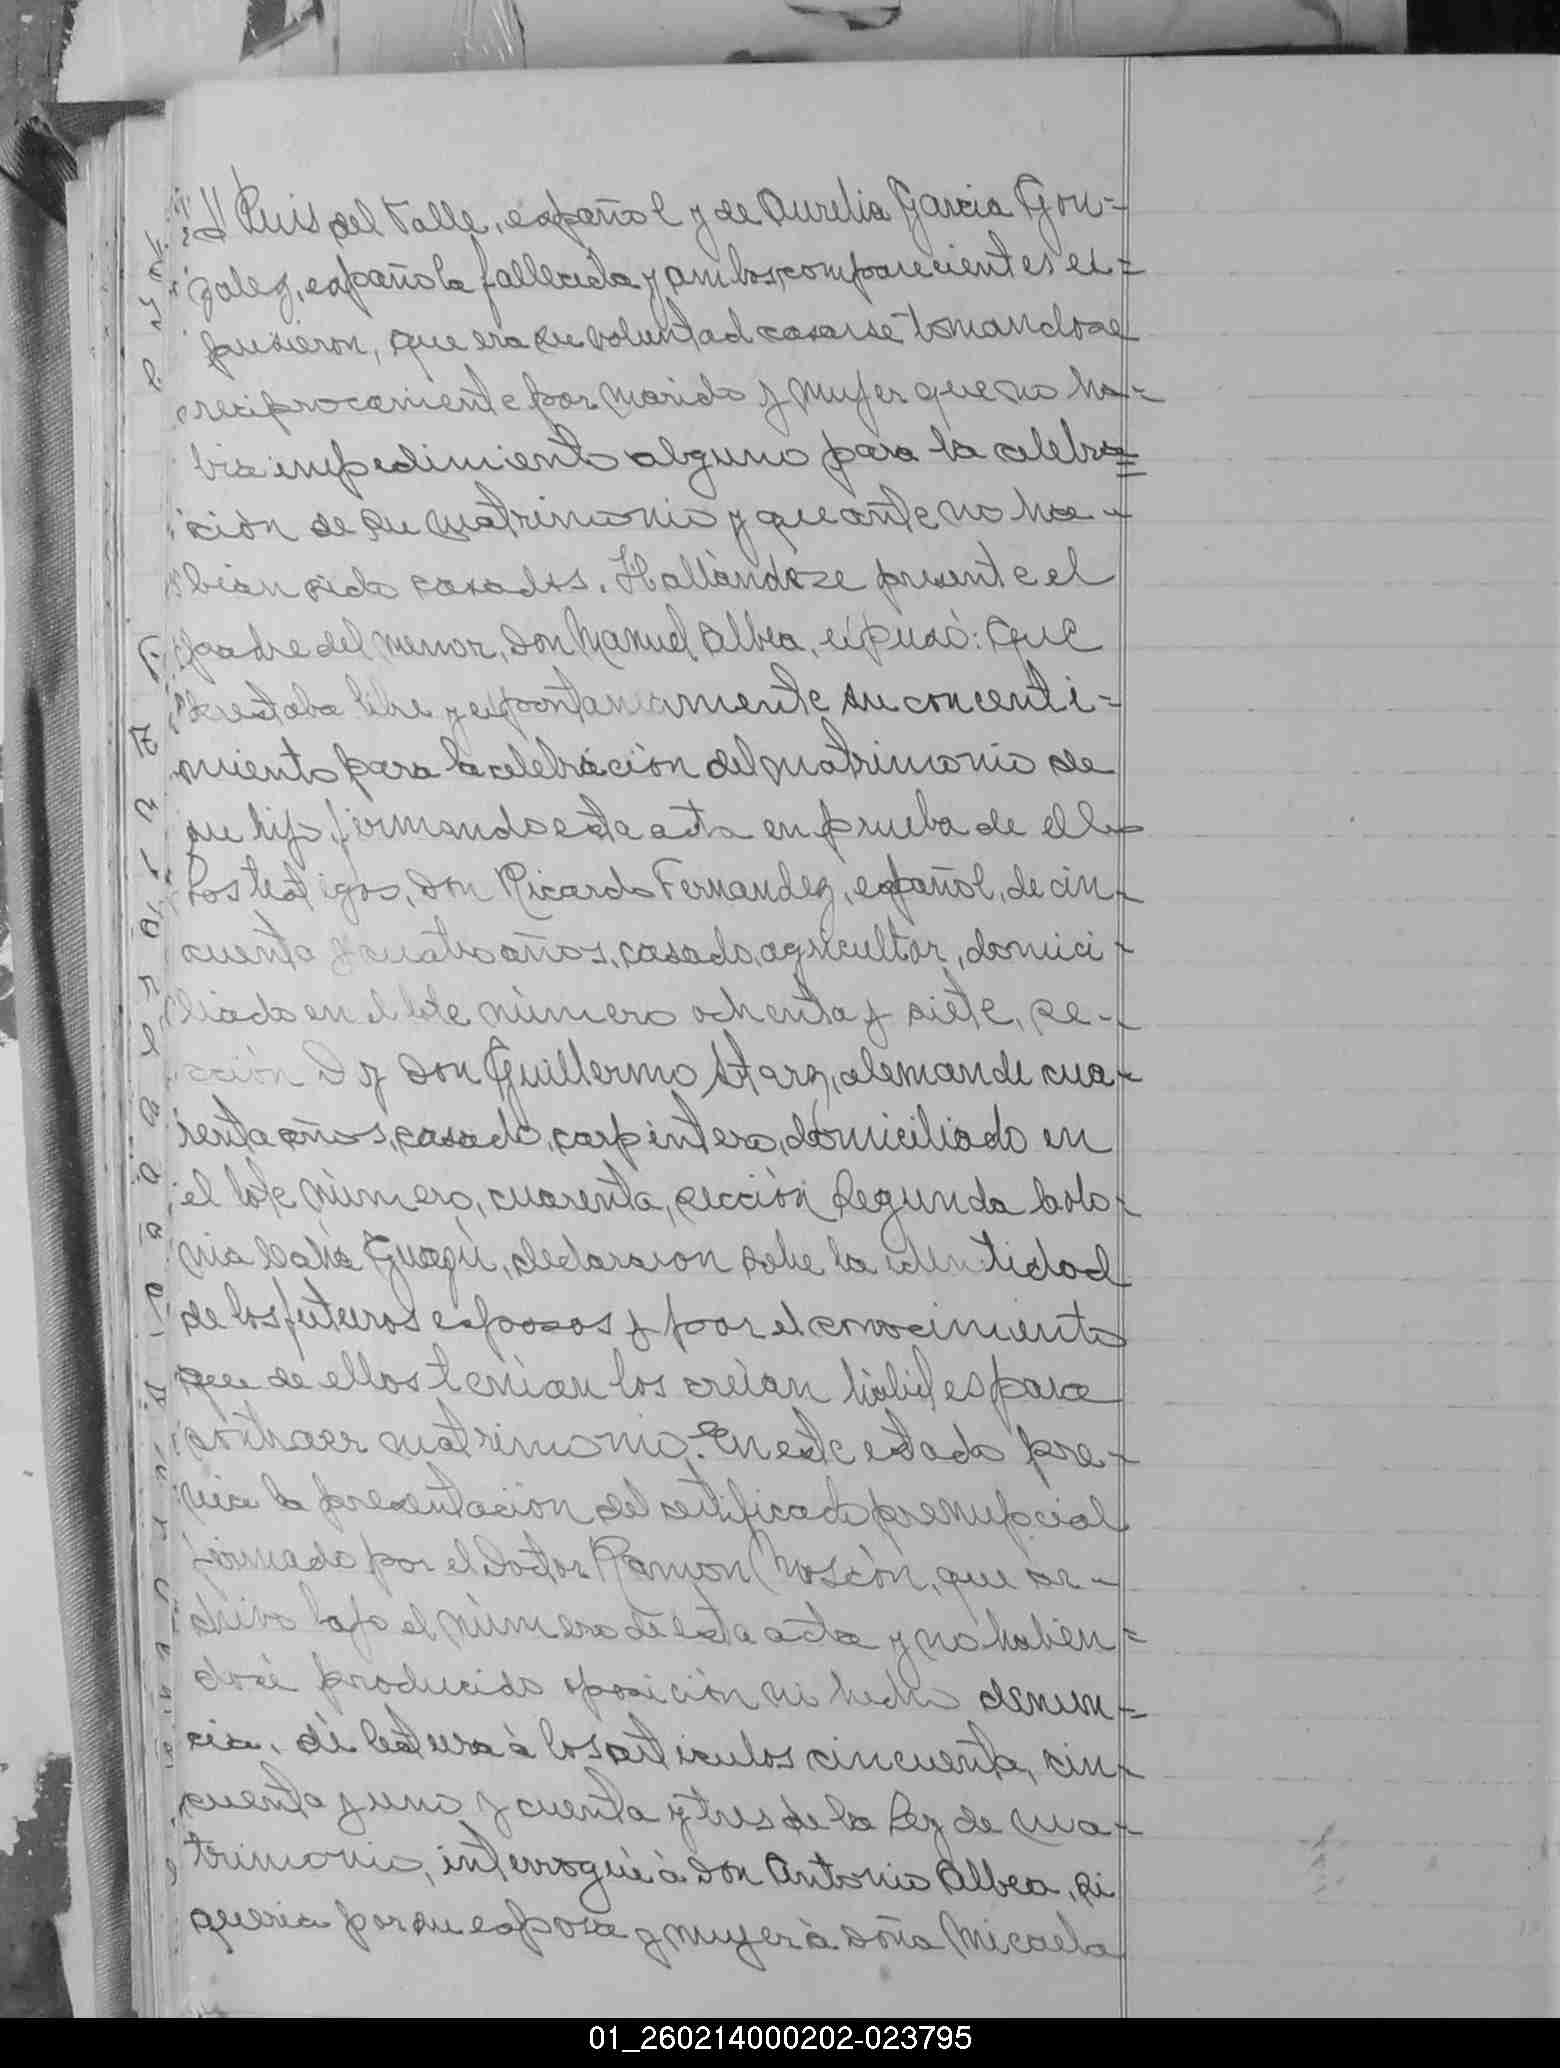 Luis del Valle, español y de Aurelia Garcia Gon=
zalez, española fallecida y ambos comparecientes ex=
pusieron, que era su voluntad casarse tomandose
reciprocamente por marido y mujer que no ha=
bia impedimiento alguno para la celebra=
ción de su matrimonio y que ante no ha-
bian sido casados. Hallàndose presente el
padre del menor, Don Manuel Albea, expusó: Que
prestaba libre y expontaneamente su concenti=
miento para la celebración del matrimonio de
su hijo, firmando esta acta en prueba de ello
Los testigos, Don Ricardo Fernandez, español, de cin-
cuenta y cuatro años, casado, agricultor, domici-
liado en el lote número ochenta y siete, se-
cción D y Don Guillermo Starz, aleman de cua-
renta años, casado, carpintero, domiciliado en
el lote número, cuarenta, sección Segunda Colo-
nia Caha Guazú, declararon sobe la identidad
de los futuros esposos y por el conocimiento
que de ellos tenian los creian habiles para
contraer matrimonio. En este estado pre-
via la presentación del cetificado prenupcial
firmado por el Doctor Ramon Moscón, que ar-
chivo bajo el número de esta acta y no habien=
dosé producido oposición ni hecho denun=
cia, dí lectura à los articulos cincuenta, cin-
cuenta y uno y cuenta y tres de la Ley de ma-
trimonio, interrogué à Don Antonio Albea, si
queria por su esposa y mujer à Doña Micaela
01_260214000202-023795